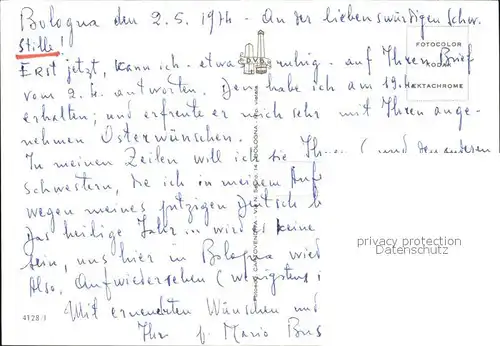 Bologna den 2.5.1974 - An der liebenswürdigen Schw.
Stilla!
Erst jetzt, kann ich - etwas ruhig - auf Ihren Brief
vom 2.4. antworten. Den habe ich am 19.4.
erhalten; und erfreute er mich sehr mit Ihren ange-
nehmen Osterwünschen.
In meinen Zeilen will ich Sie Ihnen (und den anderen
Schwestern, die ich in meinem Auf
wegen meines putzigen Deutsch b
Das heilige Jahr... wird es keine
sein, uns hier in Bologna wied
Also, Aufwiedersehen (wenigstens i
Mit erneuerten Wünschen und
Ihr p. Mario Bus
FOTOCOLOR
KODAK
EKTACHROME
D.V.B.
4128/1
privacy protection
Datenschutz